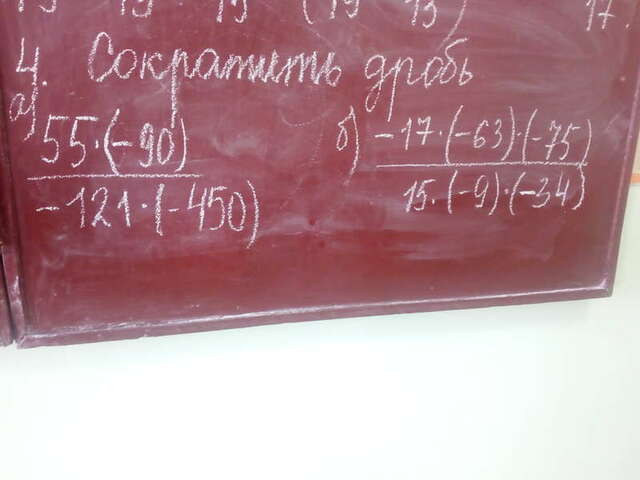 4. Сократить дробь
а) 55·(-90) / -121·(-450)
б) -17·(-63)·(-75) / 15·(-9)·(-34)